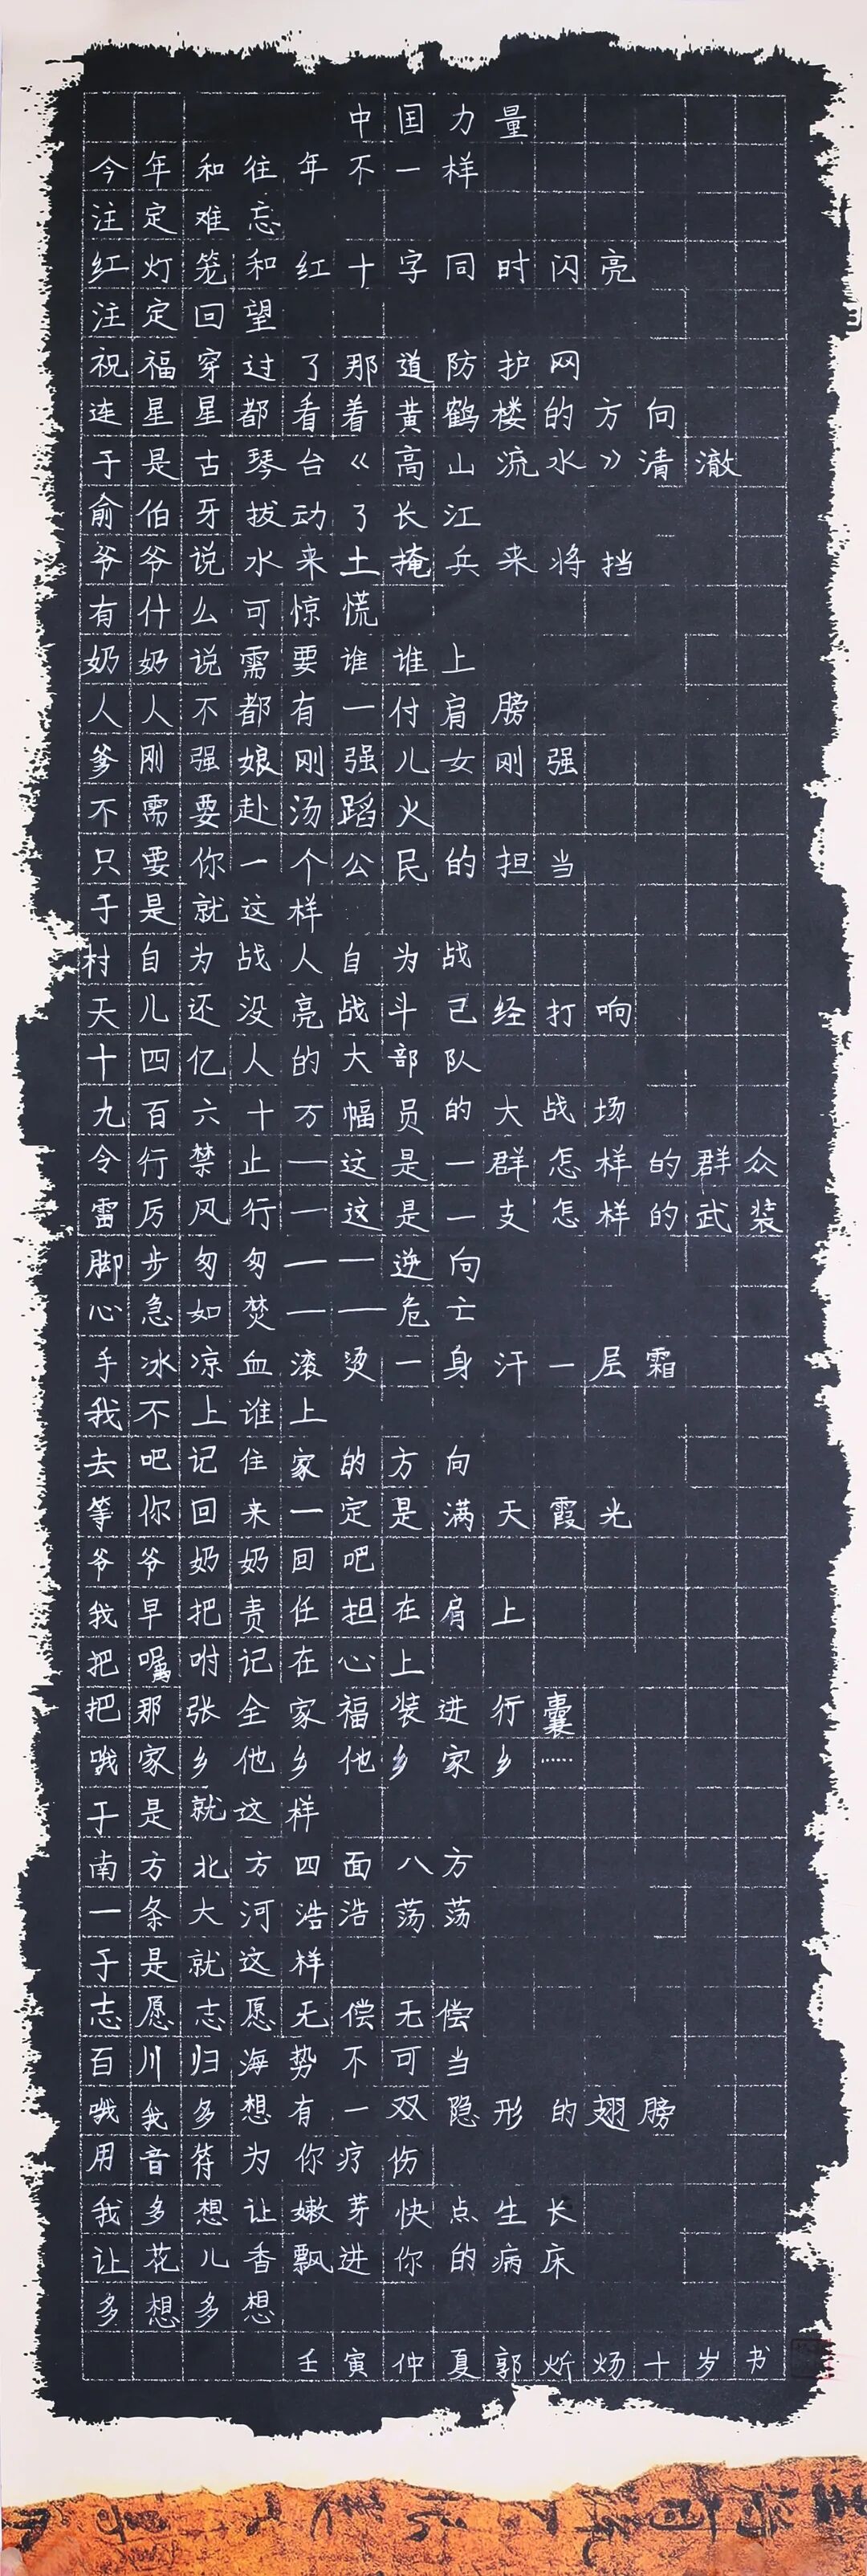 中国力量
今年和往年不一样
注定难忘
红灯笼和红十字同时闪亮
注定回望
祝福穿过了那道防护网
连星星都看着黄鹤楼的方向
于是古琴台《高山流水》清澈
俞伯牙拔动了长江
爷爷说水来土掩兵来将挡
有什么可惊慌
奶奶说需要谁谁上
人人不都有一付肩膀
爹刚强娘刚强儿女刚强
不需要赴汤蹈火
只要你一个公民的担当
于是就这样
村自为战人自为战
天儿还没亮战斗已经打响
十四亿人的大部队
九百六十万幅员的大战场
令行禁止—这是一群怎样的群众
雷厉风行—这是一支怎样的武装
脚步匆匆——逆向
心急如焚——危亡
手冰凉血滚烫一身汗一层霜
我不上谁上
去吧记住家的方向
等你回来一定是满天霞光
爷爷奶奶回吧
我早把责任担在肩上
把嘱咐记在心上
把那张全家福装进行囊
哦家乡他乡他乡家乡……
于是就这样
南方北方四面八方
一条大河浩浩荡荡
于是就这样
志愿志愿无偿无偿
百川归海势不可当
哦我多想有一双隐形的翅膀
用音符为你疗伤
我多想让嫩芽快点生长
让花儿香飘进你的病床
多想多想
壬寅仲夏郭炘炀十岁书